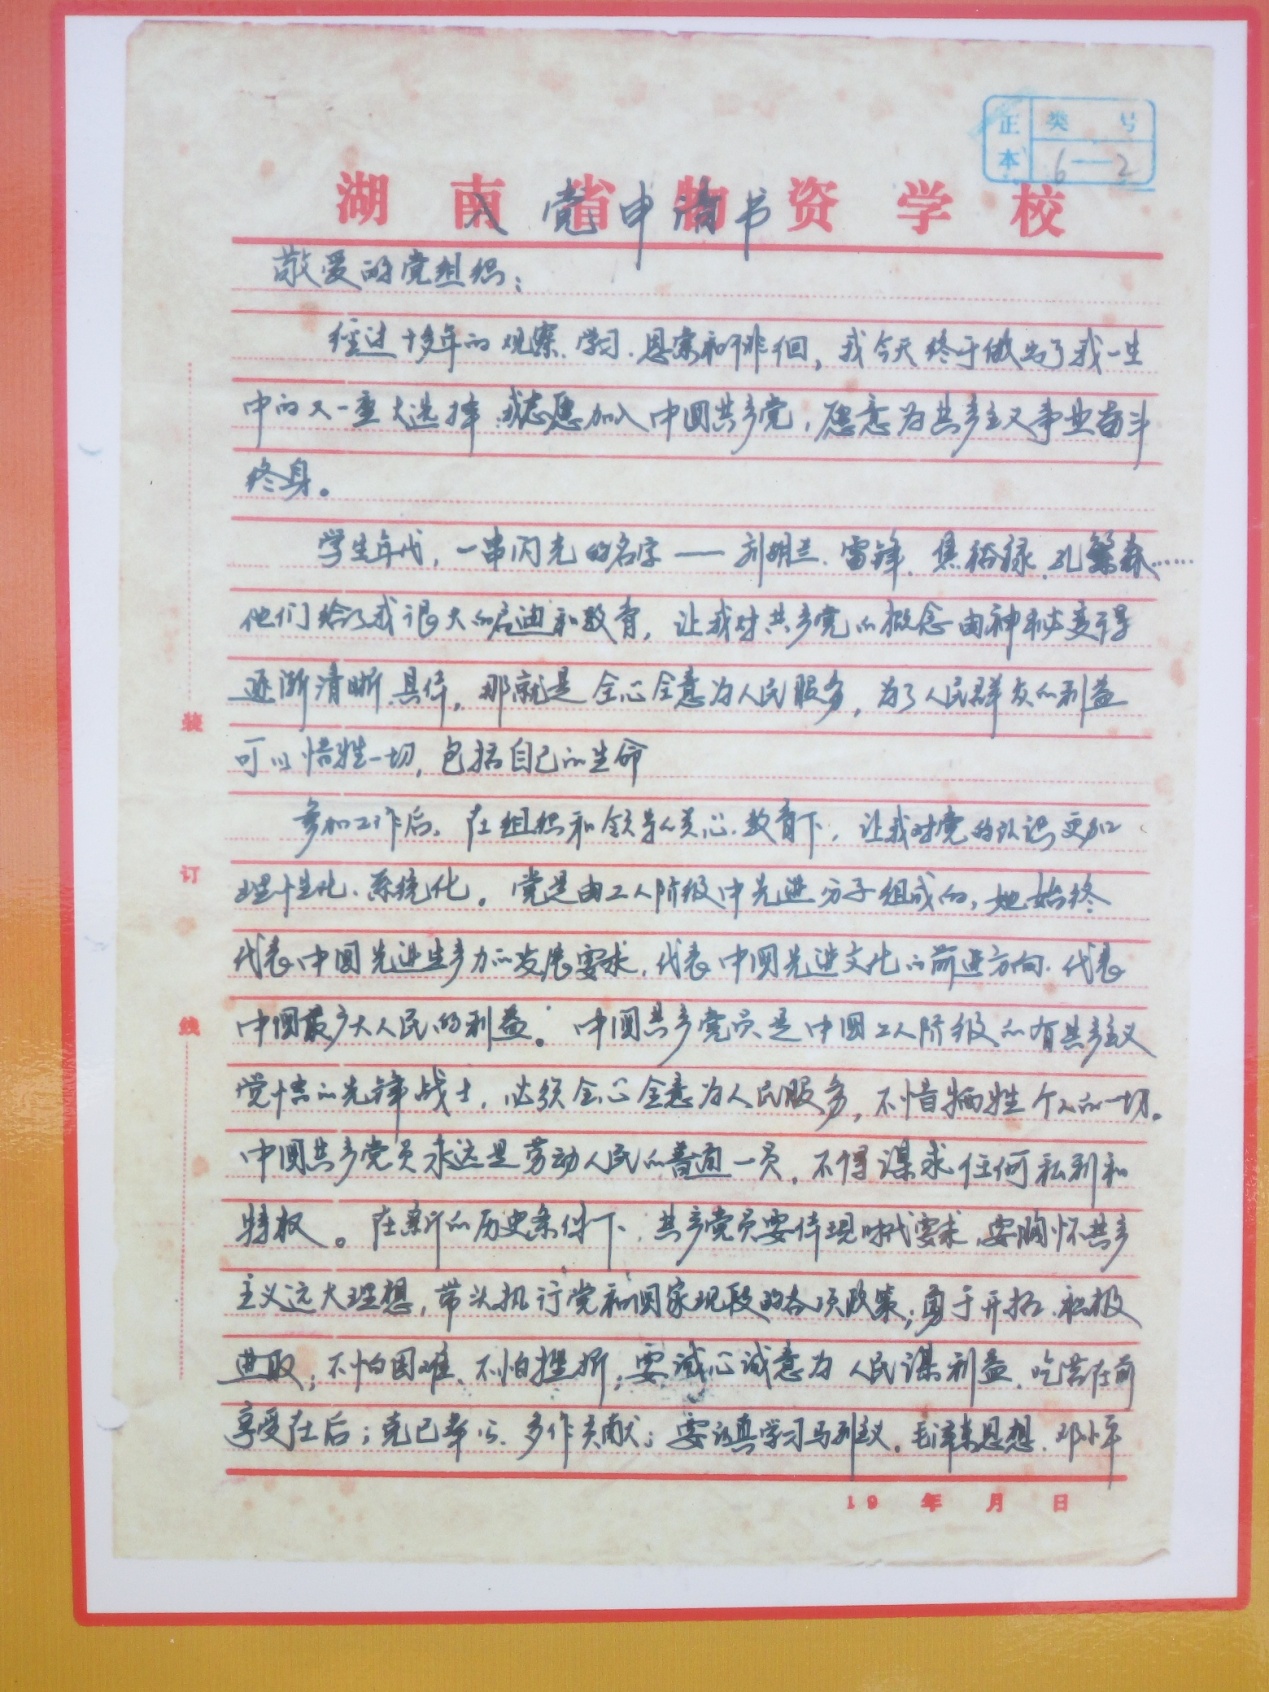 正本 类号
6—2
湖南省物资学校
入党申请书
敬爱的党组织：
经过十多年的观察、学习、思索和徘徊，我今天终于做出了我一生
中的又一重大选择 我志愿加入中国共产党，愿意为共产主义事业奋斗
终身。
学生年代，一串闪光的名字——刘胡兰、雷锋、焦裕禄、孔繁森……
他们给了我很大的启迪和教育，让我对共产党的概念由神秘变得
逐渐清晰、具体，那就是全心全意为人民服务，为了人民群众的利益
可以牺牲一切，包括自己的生命
参加工作后，在组织和领导的关心、教育下，让我对党的认识更加
理性化、系统化。党是由工人阶级中先进分子组成的，她始终
代表中国先进生产力的发展要求，代表中国先进文化的前进方向，代表
中国最广大人民的利益。中国共产党员是中国工人阶级的有共产主义
觉悟的先锋战士，必须全心全意为人民服务，不惜牺牲个人的一切。
中国共产党员永远是劳动人民的普通一员，不得谋求任何私利和
特权。在新的历史条件下，共产党员要体现时代要求，要胸怀共产
主义远大理想，带头执行党和国家现段的各项政策；勇于开拓、积极
进取；不怕困难、不怕挫折；要诚心诚意为人民谋利益，吃苦在前
享受在后；克己奉公、多作贡献；要认真学习马列主义、毛泽东思想、邓小平
装
订
线
19 年 月 日